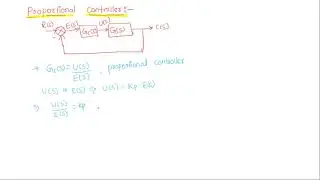 Proportional Controller:-
R(s) E(s) U(s) C(s)
Gc(s) G(s)
→ Gc(s) = U(s)/E(s) , proportional controller
U(s) ∝ E(s) ⇒ U(s) = Kp · E(s)
⇒ U(s)/E(s) = Kp ,